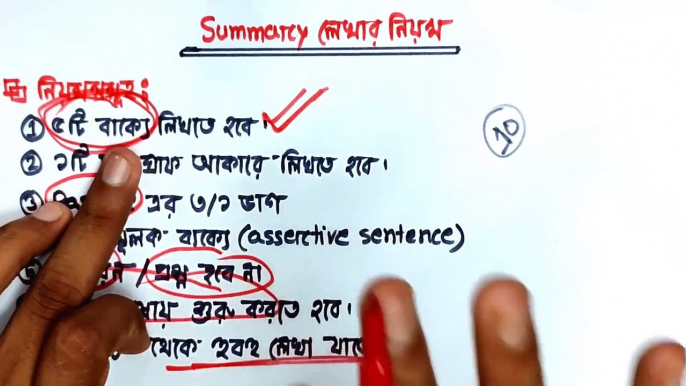 Summary লেখার নিয়ম
নিয়মসমূহ:
① ৫টি বাক্যে লিখতে হবে।
② ১টি আকারে লিখতে হবে।
③ এর ৩/১ ভাগ
বাক্যে (assertive sentence)
/ প্রশ্ন হবে না
শুরু করতে হবে।
থেকে হুবহু লেখা
10